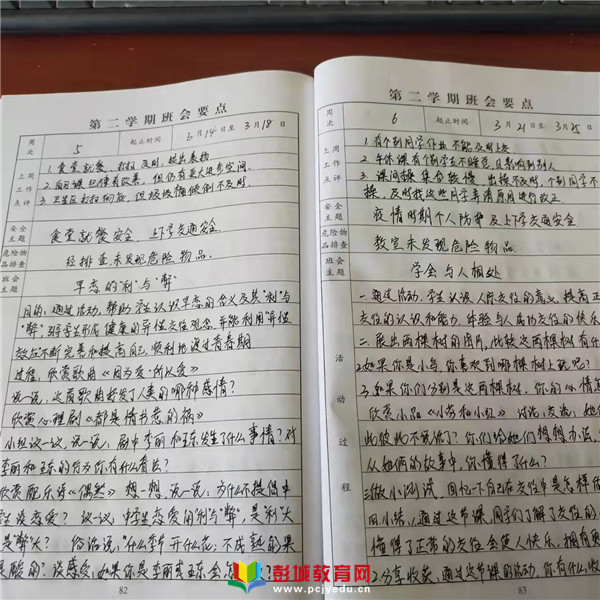 第二学期班会要点
周次 5 起止时间 3月14日至3月18日
上周工作点评
1.食堂就餐,
3.卫生区打扫
但垃圾桶倾倒不及时.
安全主题 食堂就餐安全 上下学交通安全
危险物品排查 经排查未发现危险物品.
班会主题 早恋的“利”与“弊”
目的:通过活动,帮助学生认识早恋的含义及其“利”与
“弊”,引导学生形成健康的异性交往观念,并能利用“异性
效应”不断完善和提高自己,顺利地渡过青春期
过程:欣赏歌曲《因为爱所以爱》
说一说:这首歌曲抒发了人类的哪种感情?
欣赏心理剧《都是情书惹的祸》
小组议一议,说一说:剧中李丽和王东发生了什么事情?对
李丽和王东的行为你有什么看法?
欣赏配乐诗《偶然》 想一想,说一说:为什么不提倡中
学生谈恋爱?议一议:中学生恋爱的利与“弊”,是“利”大
是“弊”大? 俗话说:“什么季节开什么花;不成熟的果
是酸的”谈感受:如果你是李丽或王东会怎
82
第二学期班会要点
周次 6 起止时间 3月21日至3月25日
上周工作点评
1.有个别同学作业不能及时上交
2.午休课有个别学生不睡觉且影响到别人
3.课间操集合较慢 出操不及时,个别同学不
操,及时找这些同学弄清原因进行改正
安全主题 疫情时期个人防护及上下学交通安全
危险物品排查 教室未发现危险物品.
班会主题 学会与人相处
活动过程
一.通过活动,学生认识人际交往的意义,提高正
交往的认识和能力,体验与人成功交往的快乐
二.展出两棵树的图片,比较这两棵树有什
2.如果你是小鸟,你喜欢到哪棵树上玩呢?
3.如果你们分别是这两棵树,你的心情怎
欣赏小品《小芳和小红》 讨论,交流:她
此彼此不说你了?你们给她们想想办法,
从她俩的故事中,你懂得了什么?
三.做小测试,回忆一下自己在交往中是怎样
四.小结:通过这节课,同学们了解了交往的
懂得了正常的交往会使人快乐,拥有朋
2.分享收获,通过这节课的活动,你有什么收
83
彭城教育网
www.pcjyedu.cn